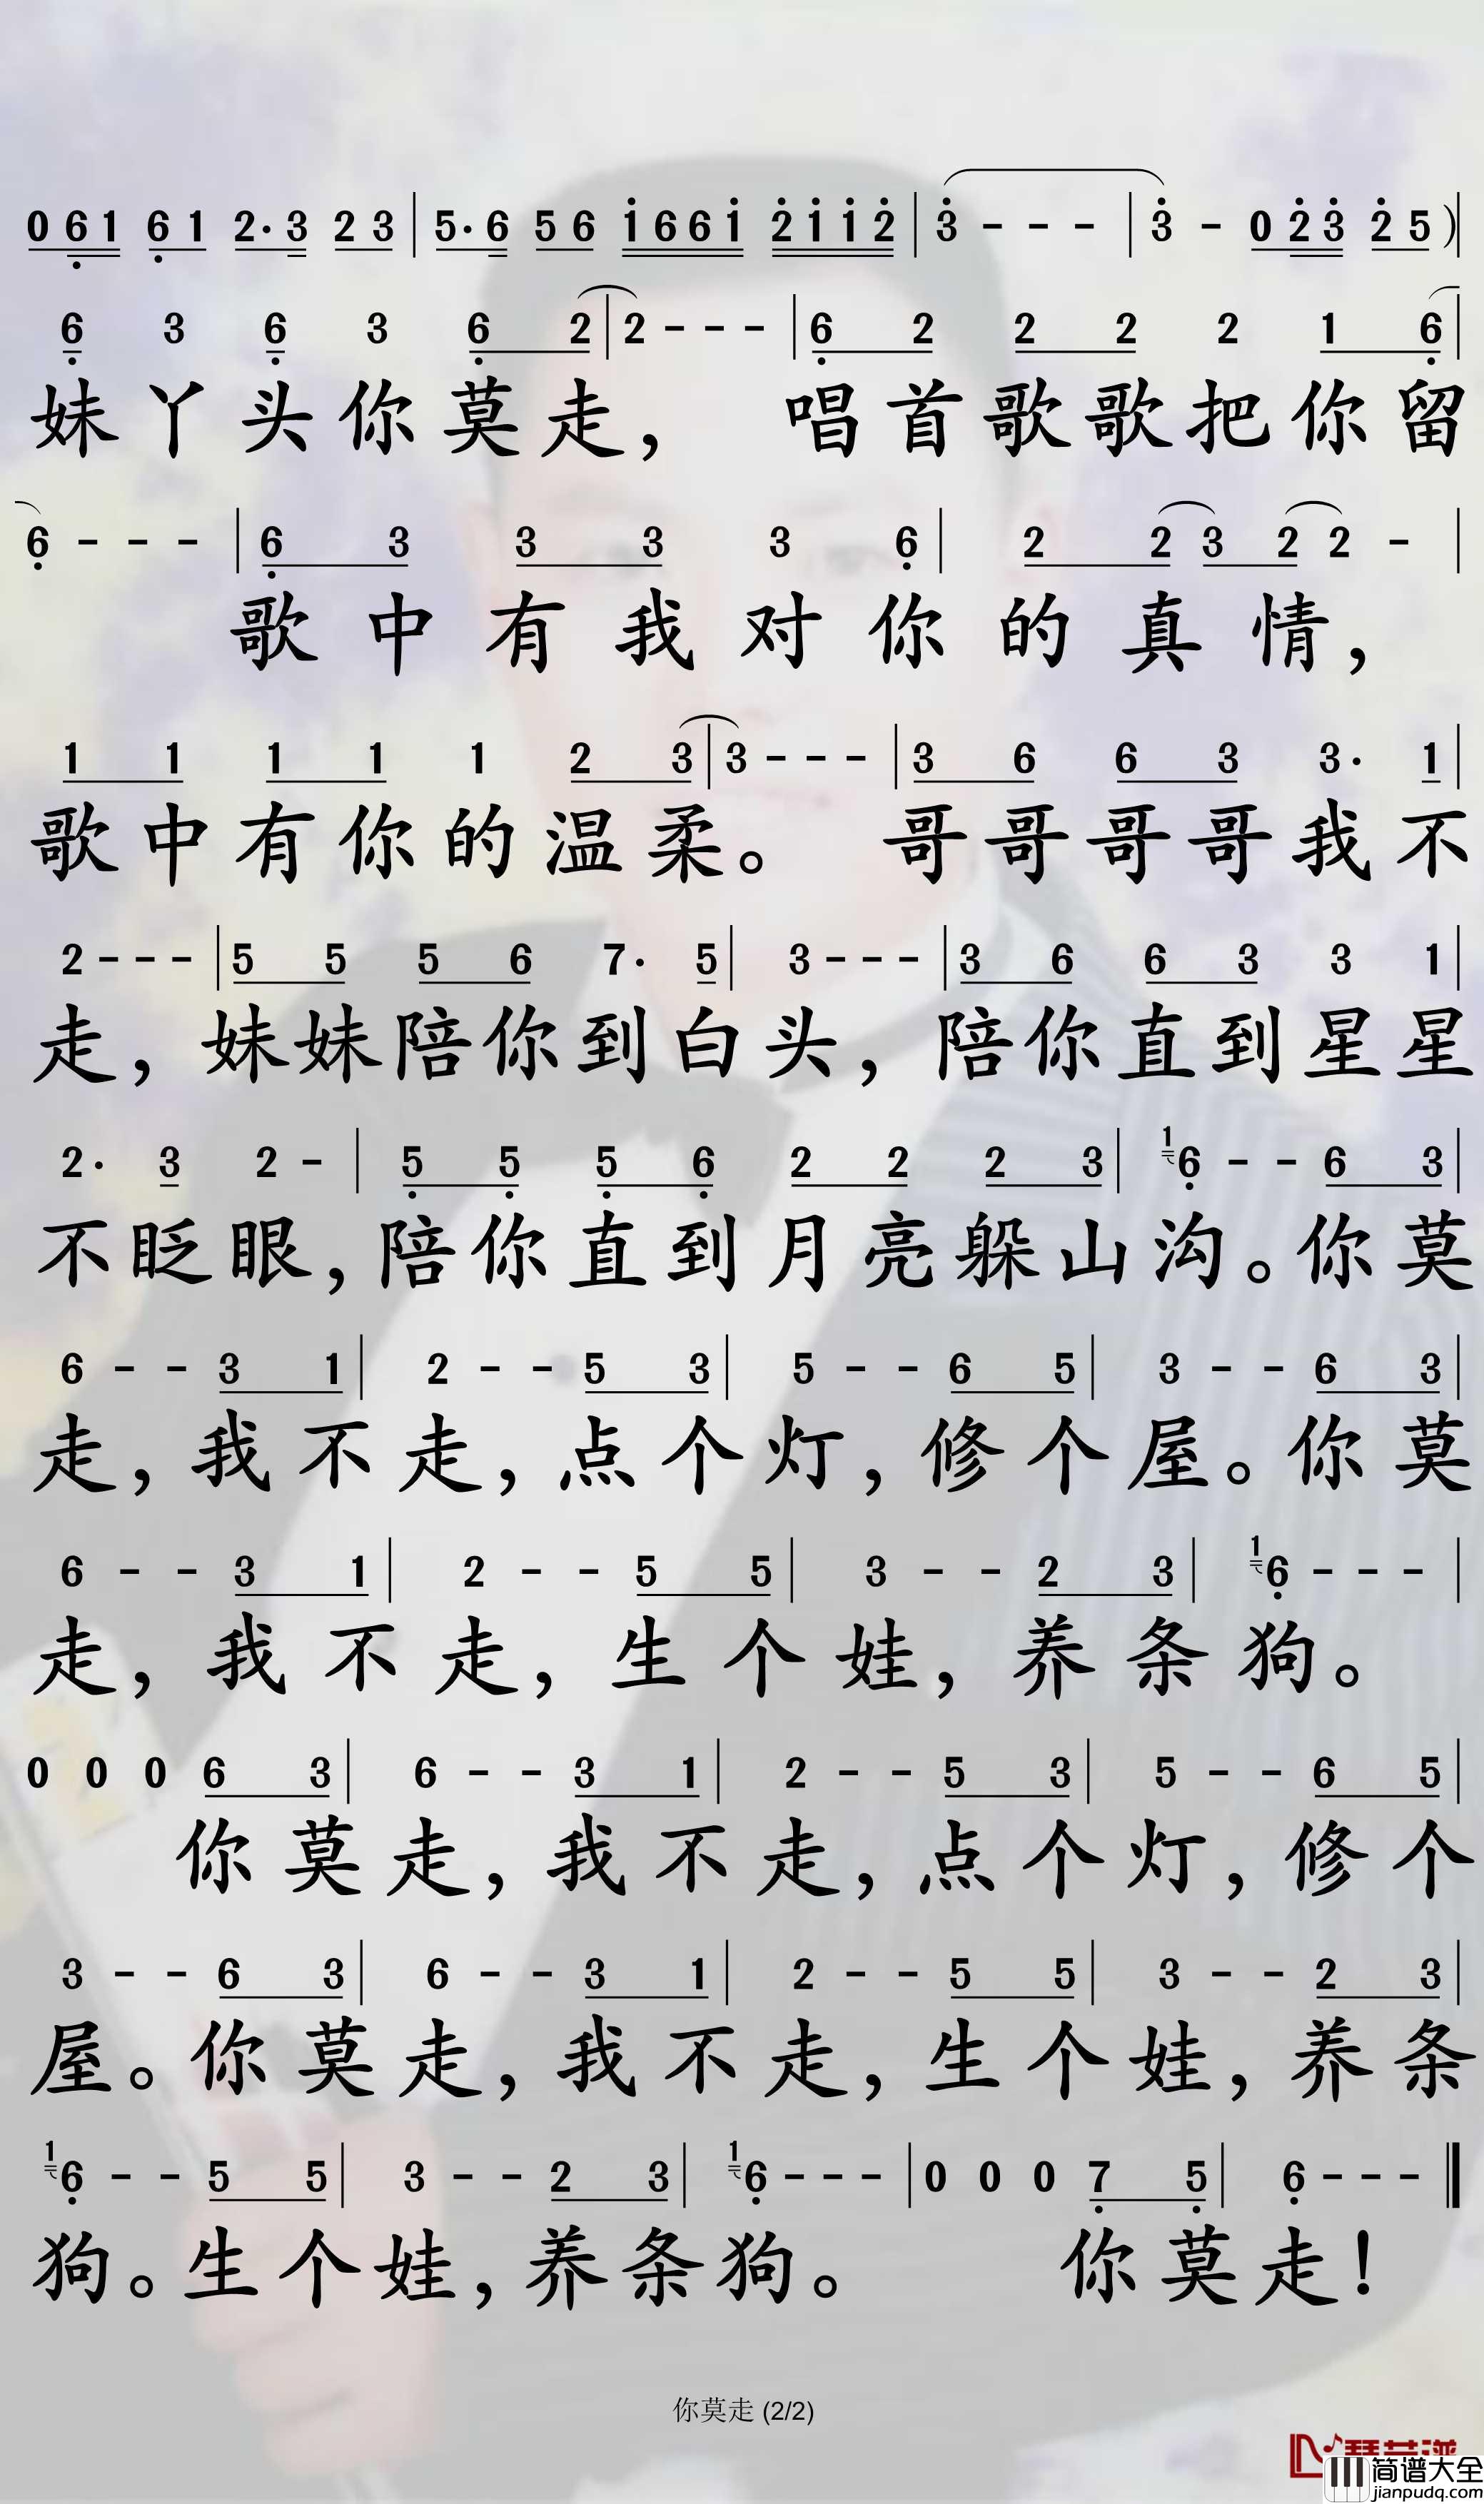 0 6 1 6 1 2· 3 2 3 | 5· 6 5 6 1 6 6 1 2 1 1 2 | 3 - - - | 3 - 0 2 3 2 5 ) |
6 3 6 3 6 2 | 2 - - - | 6 2 2 2 2 1 6 |
妹丫头你莫走， 唱首歌歌把你留
6 - - - | 6 3 3 3 3 6 | 2 2 3 2 2 - |
歌中有我对你的真情，
1 1 1 1 1 2 3 | 3 - - - | 3 6 6 3 3· 1 |
歌中有你的温柔。 哥哥哥哥我不
2 - - - | 5 5 5 6 7· 5 | 3 - - - | 3 6 6 3 3 1 |
走，妹妹陪你到白头，陪你直到星星
2· 3 2 - | 5 5 5 6 2 2 2 3 | 1 6 - - 6 3 |
不眨眼，陪你直到月亮躲山沟。你莫
6 - - 3 1 | 2 - - 5 3 | 5 - - 6 5 | 3 - - 6 3 |
走，我不走，点个灯，修个屋。你莫
6 - - 3 1 | 2 - - 5 5 | 3 - - 2 3 | 1 6 - - - |
走，我不走，生个娃，养条狗。
0 0 0 6 3 | 6 - - 3 1 | 2 - - 5 3 | 5 - - 6 5 |
你莫走，我不走，点个灯，修个
3 - - 6 3 | 6 - - 3 1 | 2 - - 5 5 | 3 - - 2 3 |
屋。你莫走，我不走，生个娃，养条
1 6 - - 5 5 | 3 - - 2 3 | 1 6 - - - | 0 0 0 7 5 | 6 - - - ‖
狗。生个娃，养条狗。 你莫走！
你莫走 (2/2)
简谱大全
jianpudq.com